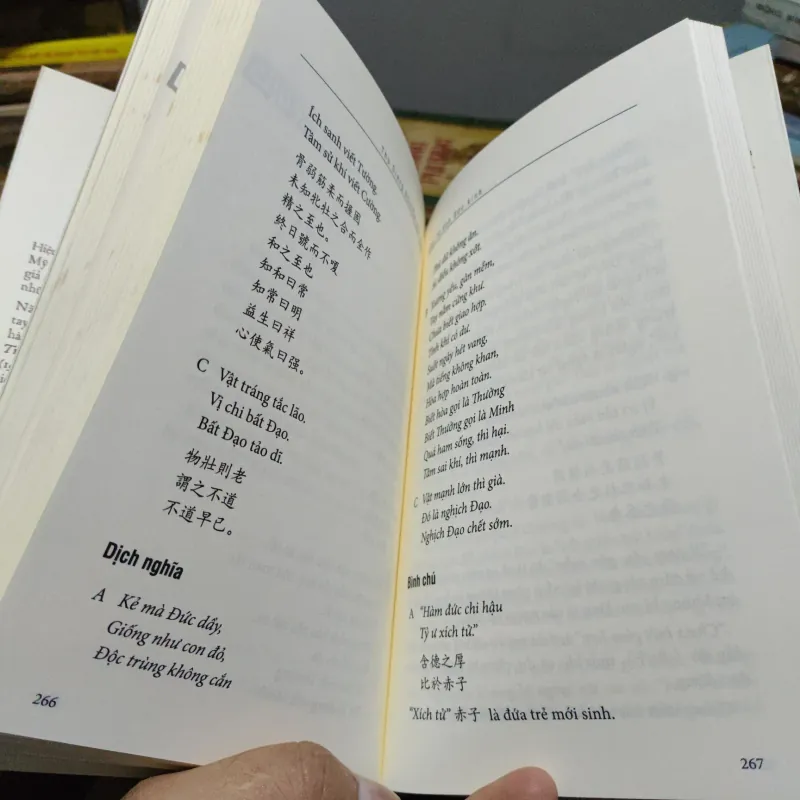 Ích sanh viết Tường,
Tâm sử khí viết Cường.
骨弱筋柔而握固
未知牝牡之合而全作
精之至也。
終日號而不嗄
和之至也
知和曰常
知常曰明
益生曰祥
心使氣曰强。
C Vật tráng tắc lão.
Vị chi bất Đạo.
Bất Đạo tảo dĩ.
物壯則老
謂之不道
不道早已。
Dịch nghĩa
A Kẻ mà Đức dầy,
Giống như con đỏ,
Độc trùng không cắn
266
không ăn,
không xớt.
Xương yếu, gân mềm,
Tay nắm cứng khư.
Chưa biết giao hợp.
Tinh khí có dư.
Suốt ngày hét vang,
Mà tiếng không khan,
Hòa hợp hoàn toàn.
Biết hòa gọi là Thường
Biết Thường gọi là Minh
Quá ham sống, thì hại.
Tâm sai khí, thì mạnh.
C Vật mạnh lớn thì già.
Đó là nghịch Đạo.
Nghịch Đạo chết sớm.
Bình chú
A "Hàm đức chi hậu
Tỷ ư xích tử."
含德之厚
比於赤子
"Xích tử" 赤子 là đứa trẻ mới sinh.
267